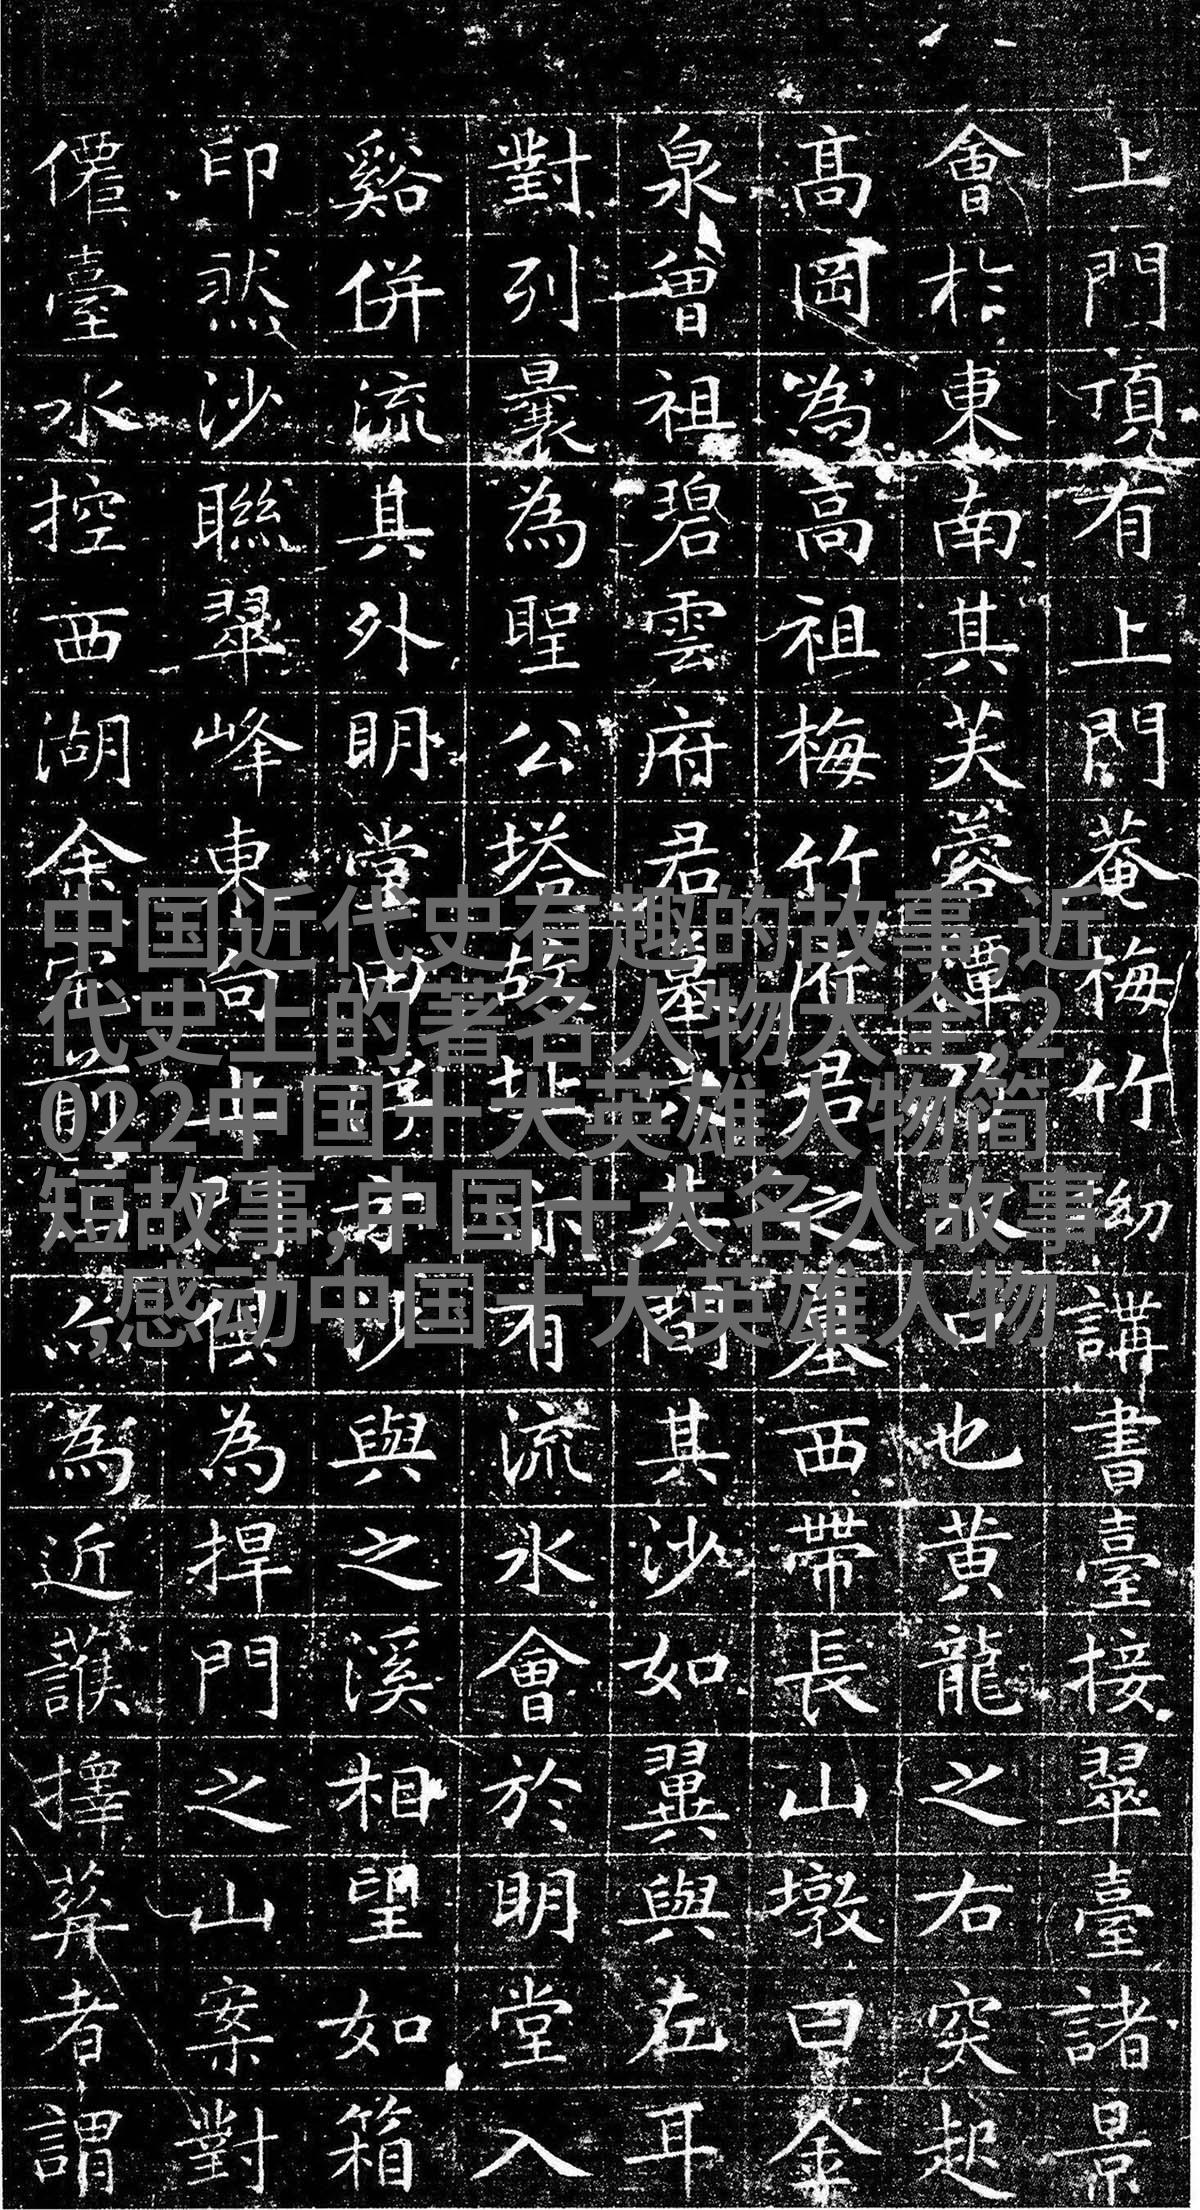 上門頂有上門菴梅竹幼講書臺接翠臺諸景
會於東南其芙蓉潭乃水口也黄龍之右突起
高岡為高祖梅竹府君之墓西帶長山墩曰金
泉曾祖碧雲府君墓間其沙如翼與左耳
對列曩為聖公塔故址有流水會於明堂入
谿併流其外明堂中沙與之溪相望如箱
印然沙聯翠峰東向上俱為捍門之山案對
僊臺水控西湖余前為近擇葬者謂
中国近代史有趣的故事,近
代史上的著名人物大全,2
022中国十大英雄人物简
短故事,中国十大名人故事
,感动中国十大英雄人物